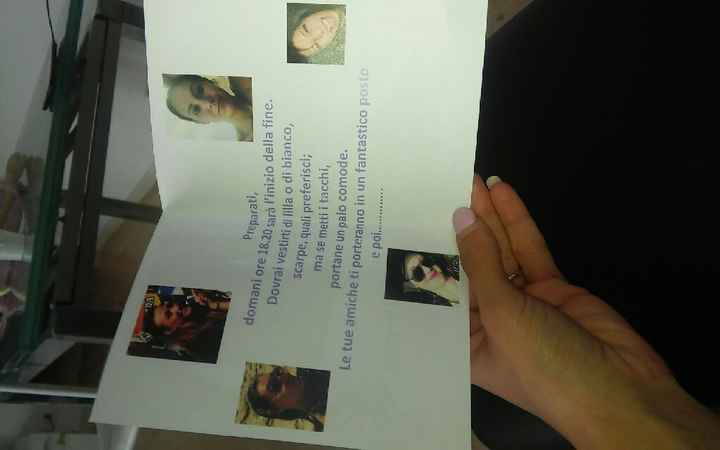 Preparati,
domani ore 18.20 sarà l'inizio della fine.
Dovrai vestirti di lilla o di bianco,
scarpe, quali preferisci;
ma se metti i tacchi,
portane un paio comode.
Le tue amiche ti porteranno in un fantastico posto
e poi..............